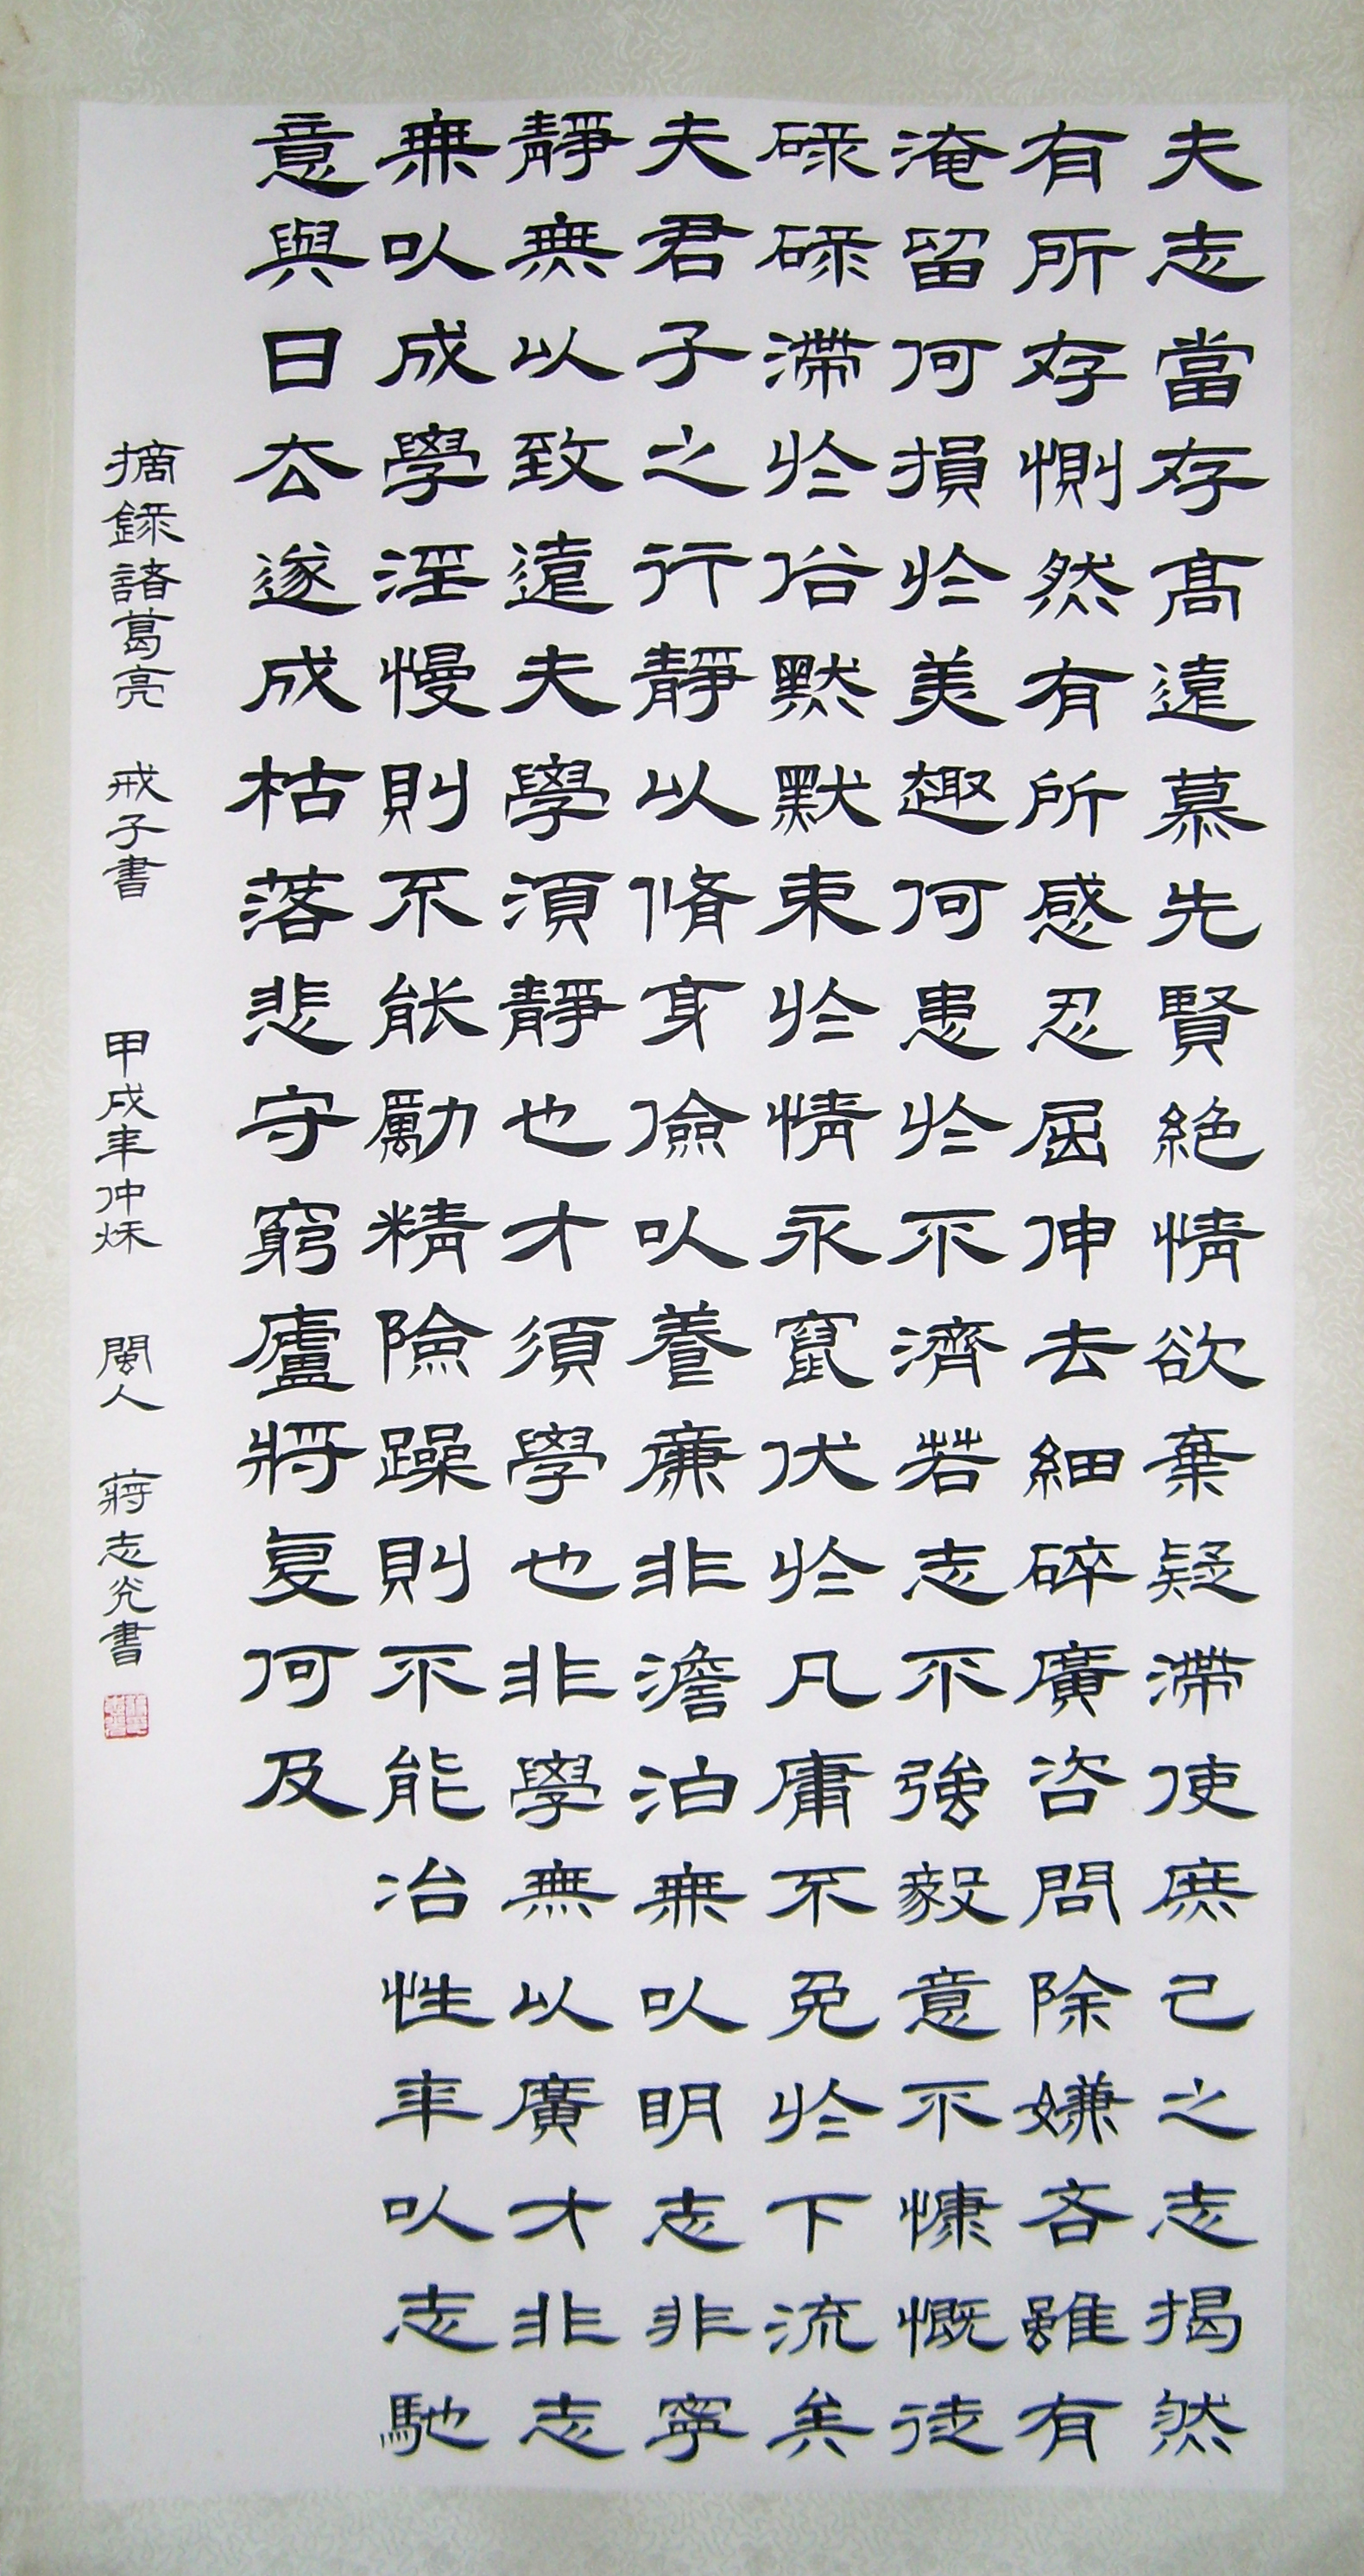 夫志當存高遠慕先賢絶情欲棄疑滯使庶己之志揭然
有所存惻然有所感忍屈伸去細碎廣咨問除嫌吝雖有
淹留何損於美趣何患於不濟若志不強毅意不慷慨徒
碌碌滯於俗默默束於情永竄伏於凡庸不免於下流矣
夫君子之行靜以脩身儉以養廉非澹泊無以明志非寧
靜無以致遠夫學須靜也才須學也非學無以廣才非志
無以成學淫慢則不能勵精險躁則不能冶性年以志馳
意與日去遂成枯落悲守窮廬將复何及
摘錄諸葛亮 戒子書 甲戌年仲秌 閩人 蔣志光書